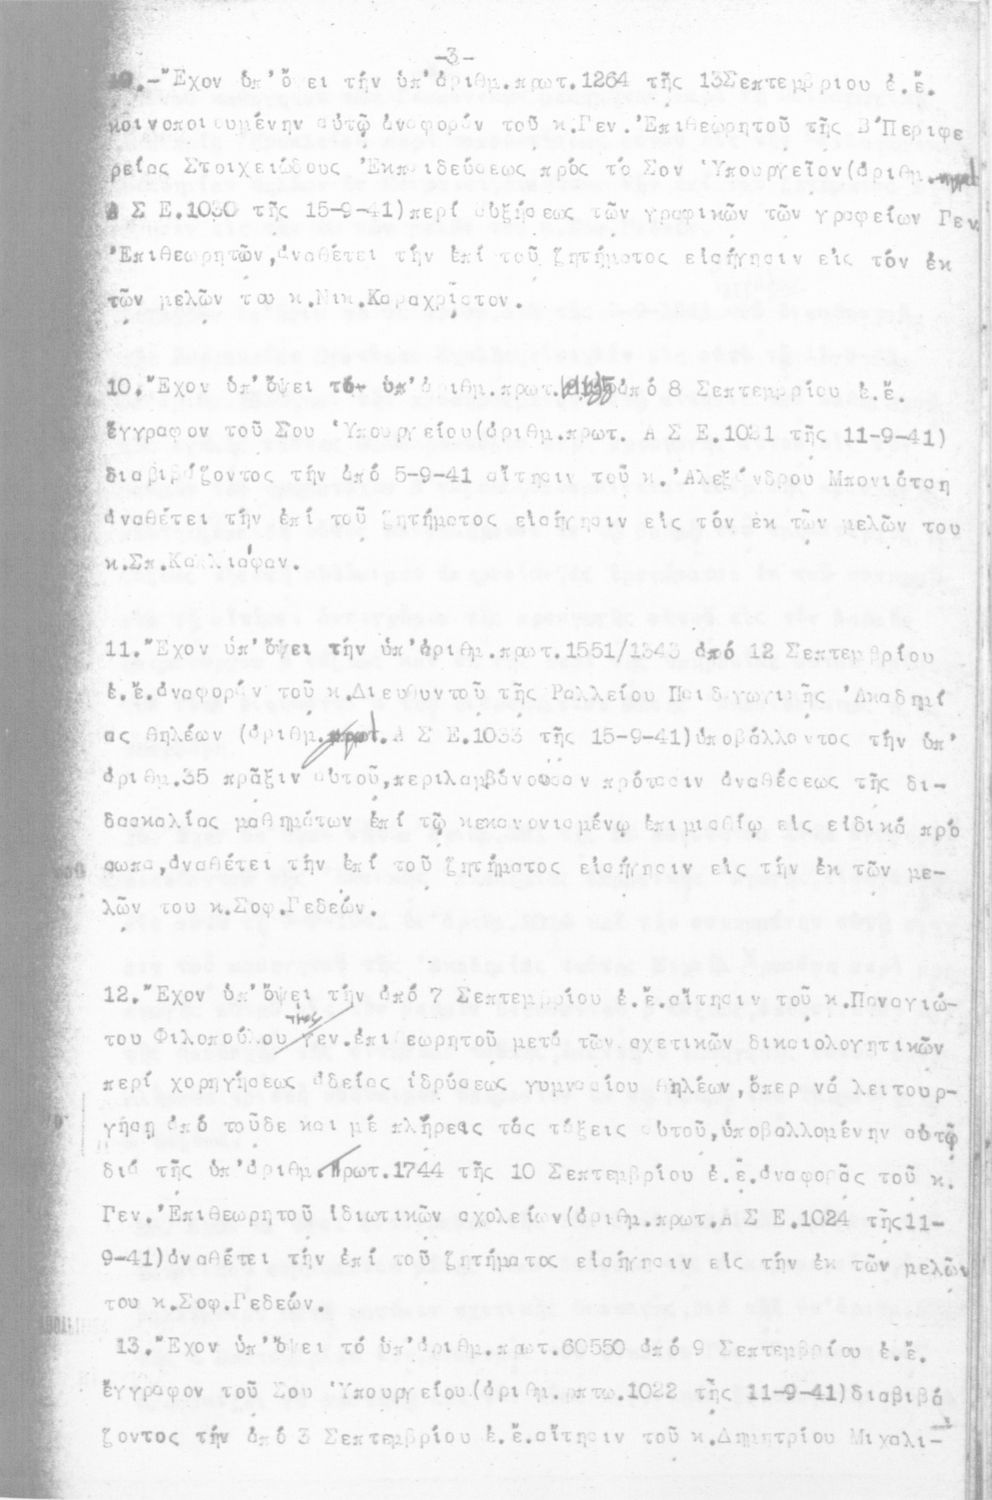 -3-
.-Ἔχον ὑπ' ὄψει τήν ὑπ' ἀριθμ.πρωτ.1264 τῆς 13Σεπτεμβρίου ἐ.ἔ.
κοινοποιουμένην αὐτῷ ἀναφοράν τοῦ κ.Γεν.Ἐπιθεωρητοῦ τῆς Β΄Περιφε
ρείας Στοιχειώδους Ἐκπαιδεύσεως πρός τό Σον Ὑπουργεῖον(ἀριθμ.πρωτ.
Α Σ Ε.1030 τῆς 15-9-41)περί αὐξήσεως τῶν γραφικῶν τῶν γραφείων Γεν.
Ἐπιθεωρητῶν,ἀναθέτει τήν ἐπί τοῦ ζητήματος εἰσήγησιν εἰς τόν ἐκ
τῶν μελῶν του κ.Νικ.Καραχρίστον.
10.Ἔχον ὑπ'ὄψει τό ὑπ'ἀριθμ.πρωτ. ἀπό 8 Σεπτεμβρίου ἐ.ἔ.
ἔγγραφον τοῦ Σου Ὑπουργείου(ἀριθμ.πρωτ. Α Σ Ε.1031 τῆς 11-9-41)
διαβιβάζοντος τήν ἀπό 5-9-41 αἴτησιν τοῦ κ.Ἀλεξάνδρου Μπονιάτση
ἀναθέτει τήν ἐπί τοῦ ζητήματος εἰσήγησιν εἰς τόν ἐκ τῶν μελῶν του
κ.Σπ.Καλλιάφαν.
11.Ἔχον ὑπ'ὄψει τήν ὑπ'ἀριθμ.πρωτ.1551/1343 ἀπό 12 Σεπτεμβρίου
ἐ.ἔ.ἀναφοράν τοῦ κ.Διευθυντοῦ τῆς Ραλλείου Παιδαγωγικῆς Ἀκαδημί
ας θηλέων (ἀριθμ.πρωτ.Α Σ Ε.1033 τῆς 15-9-41)ὑποβάλλοντος τήν ὑπ'
ἀριθμ.35 πρᾶξιν αὐτοῦ,περιλαμβάνουσαν πρότασιν ἀναθέσεως τῆς δι-
δασκαλίας μαθημάτων ἐπί τῷ κεκανονισμένῳ ἐπιμισθίῳ εἰς εἰδικά πρό
σωπα,ἀναθέτει τήν ἐπί τοῦ ζητήματος εἰσήγησιν εἰς τήν ἐκ τῶν με-
λῶν του κ.Σοφ.Γεδεών.
12.Ἔχον ὑπ'ὄψει τήν ἀπό 7 Σεπτεμβρίου ἐ.ἔ.αἴτησιν τοῦ κ.Παναγιώ-
του Φιλοπούλου τέως Γεν.ἐπιθεωρητοῦ μετά τῶν σχετικῶν δικαιολογητικῶν
περί χορηγήσεως ἀδείας ἱδρύσεως γυμνασίου θηλέων,ὅπερ νά λειτουρ-
γήσῃ ἀπό τοῦδε καί μέ πλήρεις τάς τάξεις αὐτοῦ,ὑποβαλλομένην αὐτῷ
διά τῆς ὑπ'ἀριθμ.πρωτ.1744 τῆς 10 Σεπτεμβρίου ἐ.ἔ.ἀναφορᾶς τοῦ κ.
Γεν.Ἐπιθεωρητοῦ ἰδιωτικῶν σχολείων(ἀριθμ.πρωτ.Α Σ Ε.1024 τῆς11-
9-41)ἀναθέτει τήν ἐπί τοῦ ζητήματος εἰσήγησιν εἰς τήν ἐκ τῶν μελῶν
του κ.Σοφ.Γεδεών.
13.Ἔχον ὑπ'ὄψει τό ὑπ'ἀριθμ.πρωτ.60550 ἀπό 9 Σεπτεμβρίου ἐ.ἔ.
ἔγγραφον τοῦ Σου Ὑπουργείου(ἀριθμ.ρπτω.1022 τῆς 11-9-41)διαβιβά
ζοντος τήν ἀπό 3 Σεπτεμβρίου ἐ.ἔ.αἴτησιν τοῦ κ.Δημητρίου Μιχαλι-